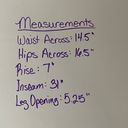 Measurements
Waist Across: 14.5"
Hips Across: 16.5"
Rise: 7"
Inseam: 31"
Leg Opening: 5.25"